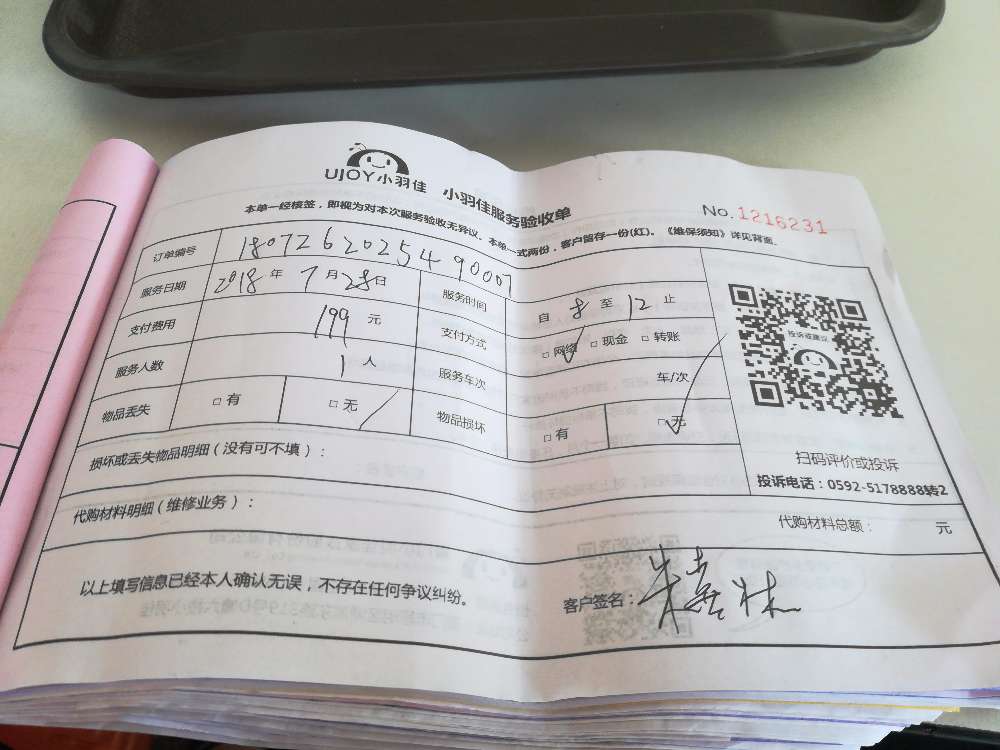 UJOY小羽佳 小羽佳服务验收单
No.1216231
本单一经核签，即视为对本次服务验收无异议、本单一式两份，客户留存一份(红)。《维保须知》详见背面。
订单编号 1807262025490007
服务日期 2018年 7月28日 服务时间 自 8 至 12 止
支付费用 199 元 支付方式 □网络 □现金 □转账
服务人数 1 人 服务车次 车/次
物品丢失 □有 □无 物品损坏 □有 □无
投诉或建议
扫码评价或投诉
投诉电话：0592-5178888转2
损坏或丢失物品明细（没有可不填）：
代购材料明细（维修业务）： 代购材料总额： 元
以上填写信息已经本人确认无误，不存在任何争议纠纷。 客户签名：